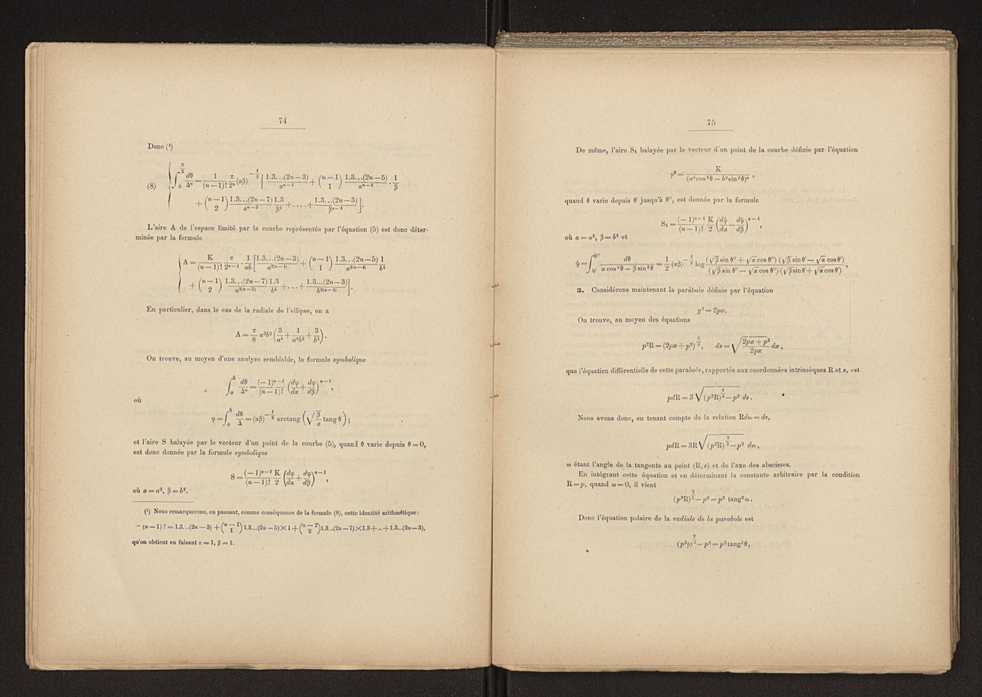 74
Donc (¹)
(8) ∫₀^{π/2} dθ/Δⁿ = 1/(n−1)! π/2ⁿ (αβ)^{−1/2} [ 1.3...(2n−3)/α^{n−1} + (n−1 1) 1.3...(2n−5)/α^{n−2} · 1/β
+ (n−1 2) 1.3...(2n−7) 1.3/β² + .... + 1.3...(2n−3)/β^{n−1} ].
L'aire A de l'espace limité par la courbe représentée par l'équation (5) est donc déter-
minée par la formule
A = K/(n−1)! π/2^{n−1} · 1/ab [ 1.3...(2n−3)/a^{2(n−1)} + (n−1 1) 1.3...(2n−5) 1/b²
+ (n−1 2) 1.3...(2n−7) 1.3/b⁴ + ... + 1.3...(2n−3)/b^{2(n−1)} ].
En particulier, dans le cas de la radiale de l'ellipse, on a
A = π/8 a³b³ (3/a⁴ + 1/a²b² + 3/b⁴).
On trouve, au moyen d'une analyse semblable, la formule symbolique
∫₀^θ dθ/Δⁿ = (−1)^{n−1}/(n−1)! (dφ/dα + dφ/dβ)^{n−1},
où
φ = ∫₀^θ dθ/Δ = (αβ)^{−1/2} arctang (√(β/α) tang θ);
et l'aire S balayée par le vecteur d'un point de la courbe (5), quand θ varie depuis θ = 0,
est donc donnée par la formule symbolique
S = (−1)^{n−1}/(n−1)! K/2 (dφ/dα + dφ/dβ)^{n−1},
où α = a², β = b².
(¹) Nous remarquerons, en passant, comme conséquence de la formule (8), cette identité arithmétique:
(n−1)! = 1.3...(2n−3) + (n−1 1) 1.3...(2n−5)×1 + (n−2 2) 1.3...(2n−7)×1.3 + ... + 1.3...(2n−3),
qu'on obtient en faisant α = 1, β = 1.
75
De même, l'aire S₁ balayée par le vecteur d'un point de la courbe définie par l'équation
ρ² = K/(a²cos²θ − b²sin²θ)ⁿ,
quand θ varie depuis θ' jusqu'à θ'', est donnée par la formule
S₁ = (−1)^{n−1}/(n−1)! K/2 (dψ/dα − dψ/dβ)^{n−1},
où α = a², β = b² et
ψ = ∫_{θ'}^{θ''} dθ/(α cos²θ − β sin²θ) = 1/2 (αβ)^{−1/2} log (√β sin θ'' + √α cos θ'') (√β sin θ' − √α cos θ')/(√β sin θ'' − √α cos θ'') (√β sin θ' + √α cos θ').
2. Considérons maintenant la parabole définie par l'équation
y² = 2px.
On trouve, au moyen des équations
p²R = (2px + p²)^{3/2}, ds = √((2px + p²)/2px) dx,
que l'équation différentielle de cette parabole, rapportée aux coordonnées intrinsèques R et s, est
pdR = 3 √((p²R)^{2/3} − p²) ds.
Nous avons donc, en tenant compte de la relation Rdω = ds,
pdR = 3R √((p²R)^{2/3} − p²) dω,
ω étant l'angle de la tangente au point (R, s) et de l'axe des abscisses.
En intégrant cette équation et en déterminant la constante arbitraire par la condition
R = p, quand ω = 0, il vient
(p²R)^{2/3} − p² = p² tang²ω.
Donc l'équation polaire de la radiale de la parabole est
(p²ρ)^{2/3} − p² = p² tang²θ,